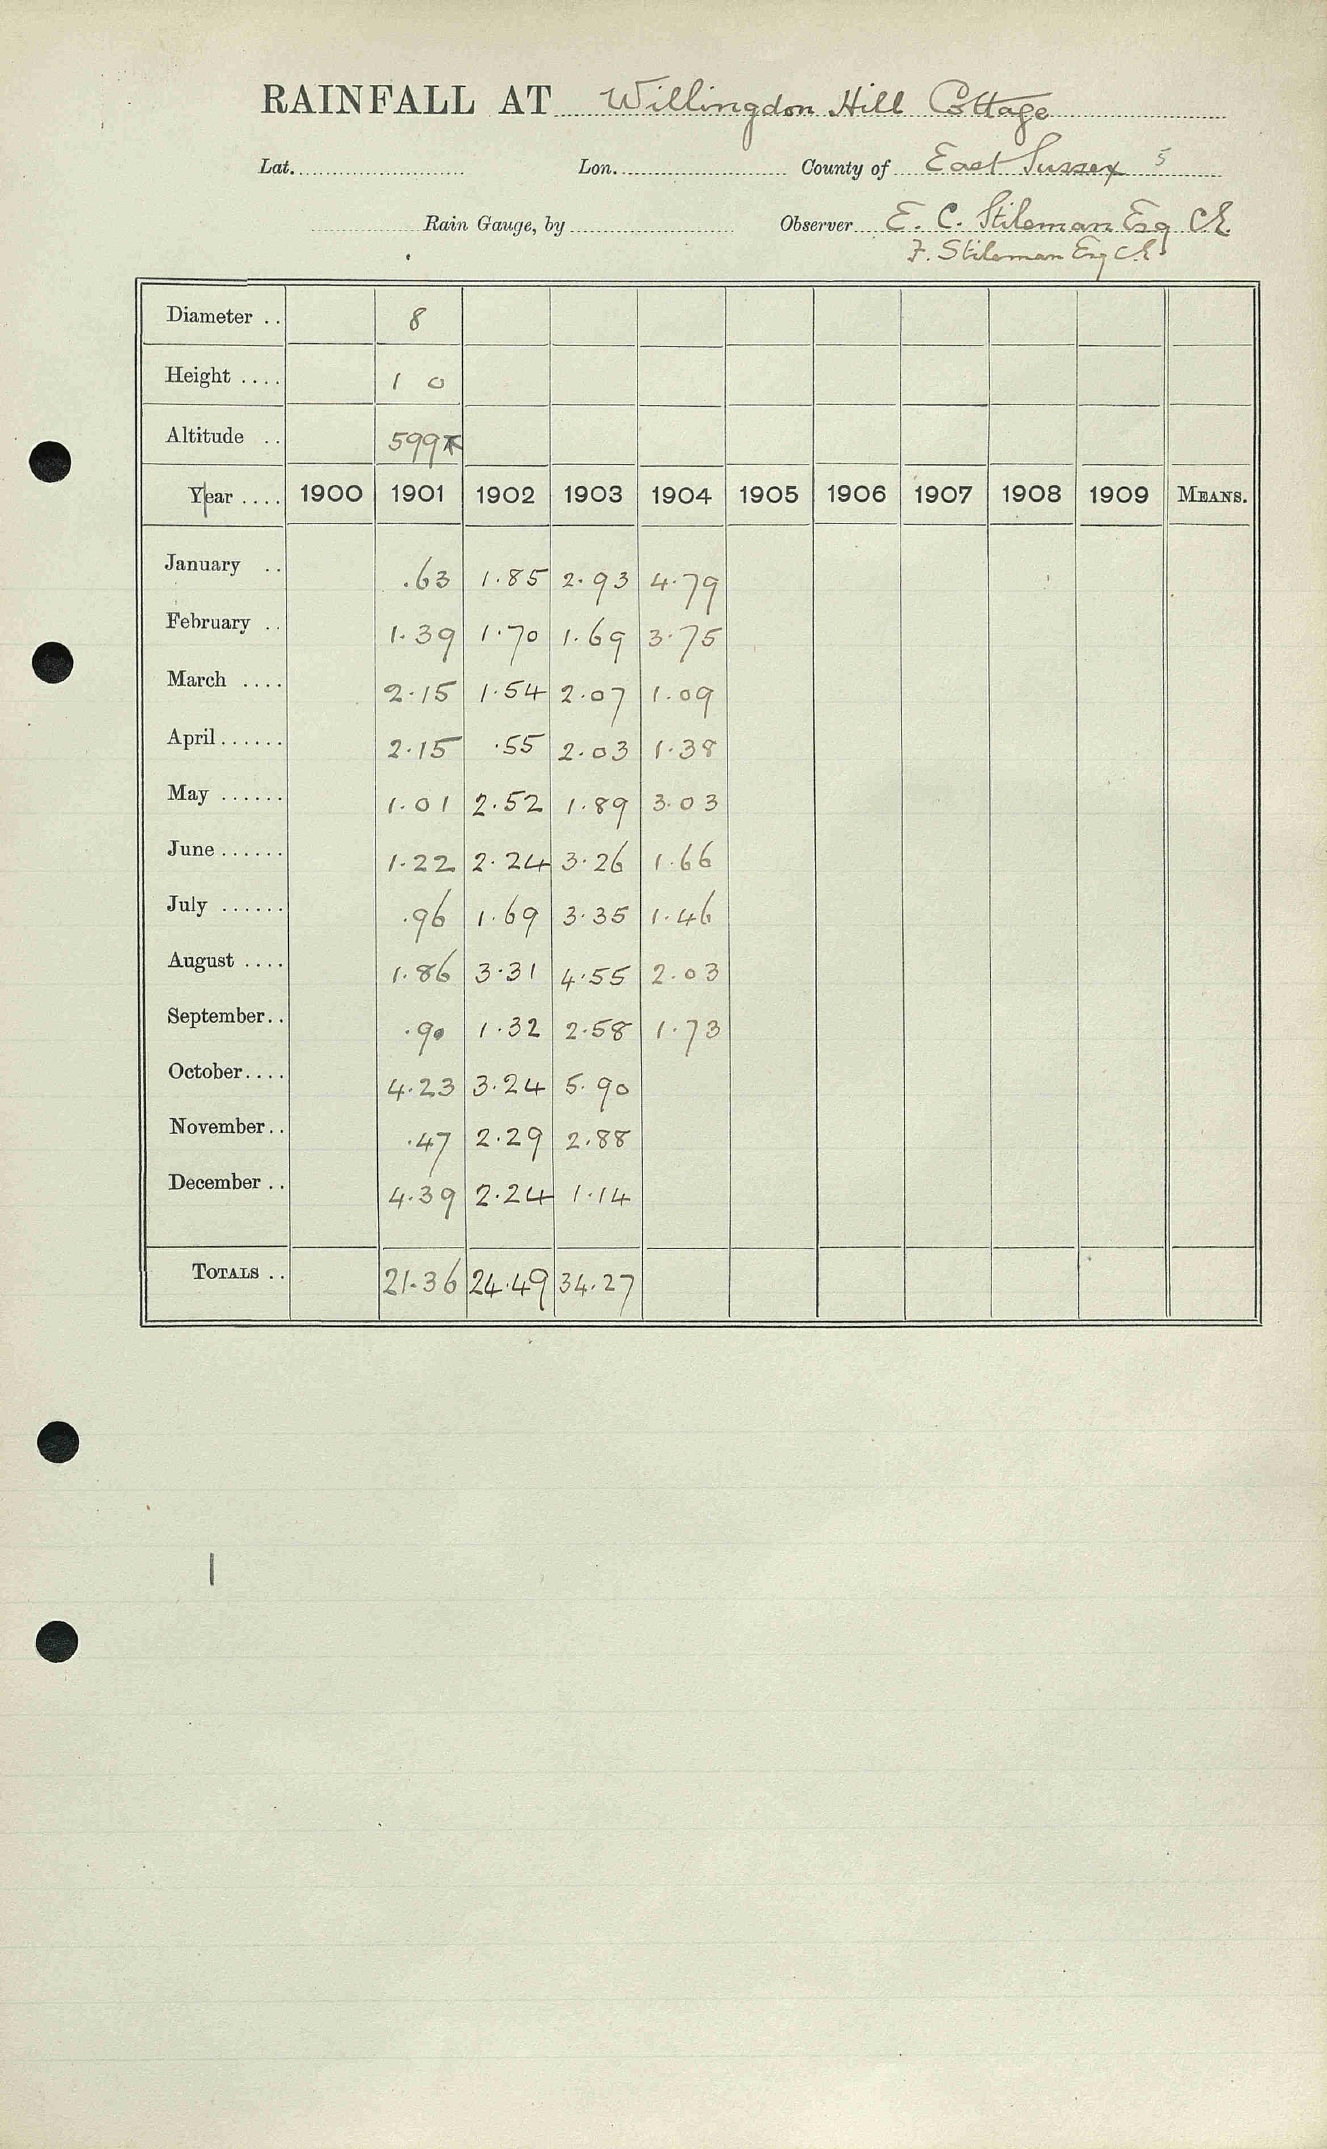 RAINFALL AT Willingdon Hill Cottage
Lat. Lon. County of East Sussex 5
Rain Gauge, by Observer E. C. Stileman Esq C.E.
F. Stileman Esq C.E
Diameter .. 8
Height .... 1 0
Altitude .. 599
Year .... 1900 1901 1902 1903 1904 1905 1906 1907 1908 1909 MEANS.
January .. .63 1.85 2.93 4.79
February .. 1.39 1.70 1.69 3.75
March .... 2.15 1.54 2.07 1.09
April...... 2.15 .55 2.03 1.38
May ...... 1.01 2.52 1.89 3.03
June...... 1.22 2.24 3.26 1.66
July ...... .96 1.69 3.35 1.46
August .... 1.86 3.31 4.55 2.03
September.. .90 1.32 2.58 1.73
October.... 4.23 3.24 5.90
November.. .47 2.29 2.88
December .. 4.39 2.24 1.14
TOTALS .. 21.36 24.49 34.27